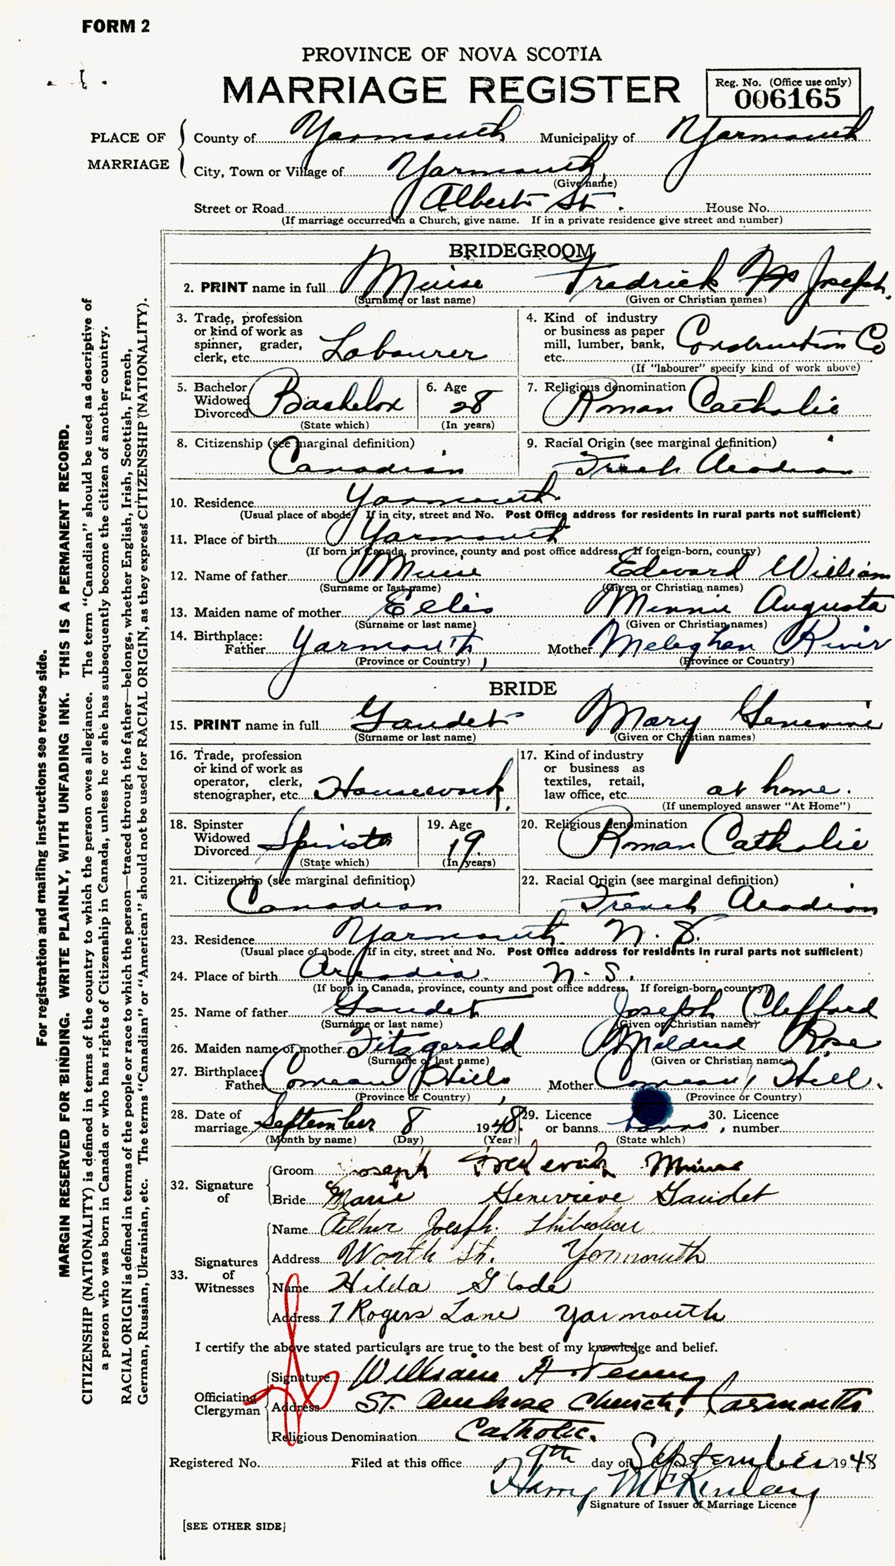 FORM 2
PROVINCE OF NOVA SCOTIA
MARRIAGE REGISTER
Reg. No. (Office use only)
006165
PLACE OF MARRIAGE
County of Yarmouth Municipality of Yarmouth
City, Town or Village of Yarmouth
(Give name)
Street or Road Albert St. House No.
(If marriage occurred in a Church, give name. If in a private residence give street and number)
BRIDEGROOM
2. PRINT name in full Muise Fredrick Joseph.
(Surname or last name) (Given or Christian names)
3. Trade, profession or kind of work as spinner, grader, clerk, etc. Labourer
4. Kind of industry or business as paper mill, lumber, bank, etc. Construction Co
(If "labourer" specify kind of work above)
5. Bachelor Widowed Divorced Bachelor
(State which)
6. Age 28
(In years)
7. Religious denomination Roman Catholic
8. Citizenship (see marginal definition) Canadian
9. Racial Origin (see marginal definition) French Acadian
10. Residence Yarmouth
(Usual place of abode. If in city, street and No. Post Office address for residents in rural parts not sufficient)
11. Place of birth Yarmouth
(If born in Canada, province, county and post office address. If foreign-born, country)
12. Name of father Muise Edward William
(Surname or last name) (Given or Christian names)
13. Maiden name of mother Ellis Minnie Augusta
(Surname or last name) (Given or Christian names)
14. Birthplace: Father Yarmouth, Mother Meteghan River
(Province or Country) (Province or Country)
BRIDE
15. PRINT name in full Gaudet Mary Genevive
(Surname or last name) (Given or Christian names)
16. Trade, profession or kind of work as operator, clerk, stenographer, etc. Housework.
17. Kind of industry or business as textiles, retail, law office, etc. at home.
(If unemployed answer "At Home")
18. Spinster Widowed Divorced Spinster
(State which)
19. Age 19
(In years)
20. Religious denomination Roman Catholic
21. Citizenship (see marginal definition) Canadian
22. Racial Origin (see marginal definition) French Acadian
23. Residence Yarmouth N.S.
(Usual place of abode. If in city, street and No. Post Office address for residents in rural parts not sufficient)
24. Place of birth Arcadia N.S.
(If born in Canada, province, county and post office address. If foreign-born, country)
25. Name of father Gaudet Joseph Clifford
(Surname or last name) (Given or Christian names)
26. Maiden name of mother Fitzgerald Mildred Rose
(Surname or last name) (Given or Christian names)
27. Birthplace: Father Comeau Hills Mother Comeau, Hill.
(Province or Country) (Province or Country)
28. Date of marriage September 8 1948.
(Month by name) (Day) (Year)
29. Licence or banns banns,
(State which)
30. Licence number
32. Signature of
Groom Joseph Frederick Muise
Bride Marie Genevieve Gaudet
33. Signatures of Witnesses
Name Joseph. Thibodeau
Address St. Yarmouth
Name Hilda Glode
Address 7 Rogers Lane Yarmouth
I certify the above stated particulars are true to the best of my knowledge and belief.
Officiating Clergyman
Signature William A Penny
Address ST. Ambrose Church, Yarmouth
Religious Denomination Catholic.
Registered No. Filed at this office 9th day of September 1948
Harry McKinlay
Signature of Issuer of Marriage Licence
[SEE OTHER SIDE]
For registration and mailing instructions see reverse side.
MARGIN RESERVED FOR BINDING. WRITE PLAINLY, WITH UNFADING INK. THIS IS A PERMANENT RECORD.
CITIZENSHIP (NATIONALITY) is defined in terms of the country to which the person owes allegiance. The term "Canadian" should be used as descriptive of
a person who was born in Canada or who has rights of Citizenship in Canada, unless he or she has subsequently become the citizen of another country.
RACIAL ORIGIN is defined in terms of the people or race to which the person—traced through the father—belongs, whether English, Irish, Scottish, French,
German, Russian, Ukrainian, etc. The terms "Canadian" or "American" should not be used for RACIAL ORIGIN, as they express CITIZENSHIP (NATIONALITY).